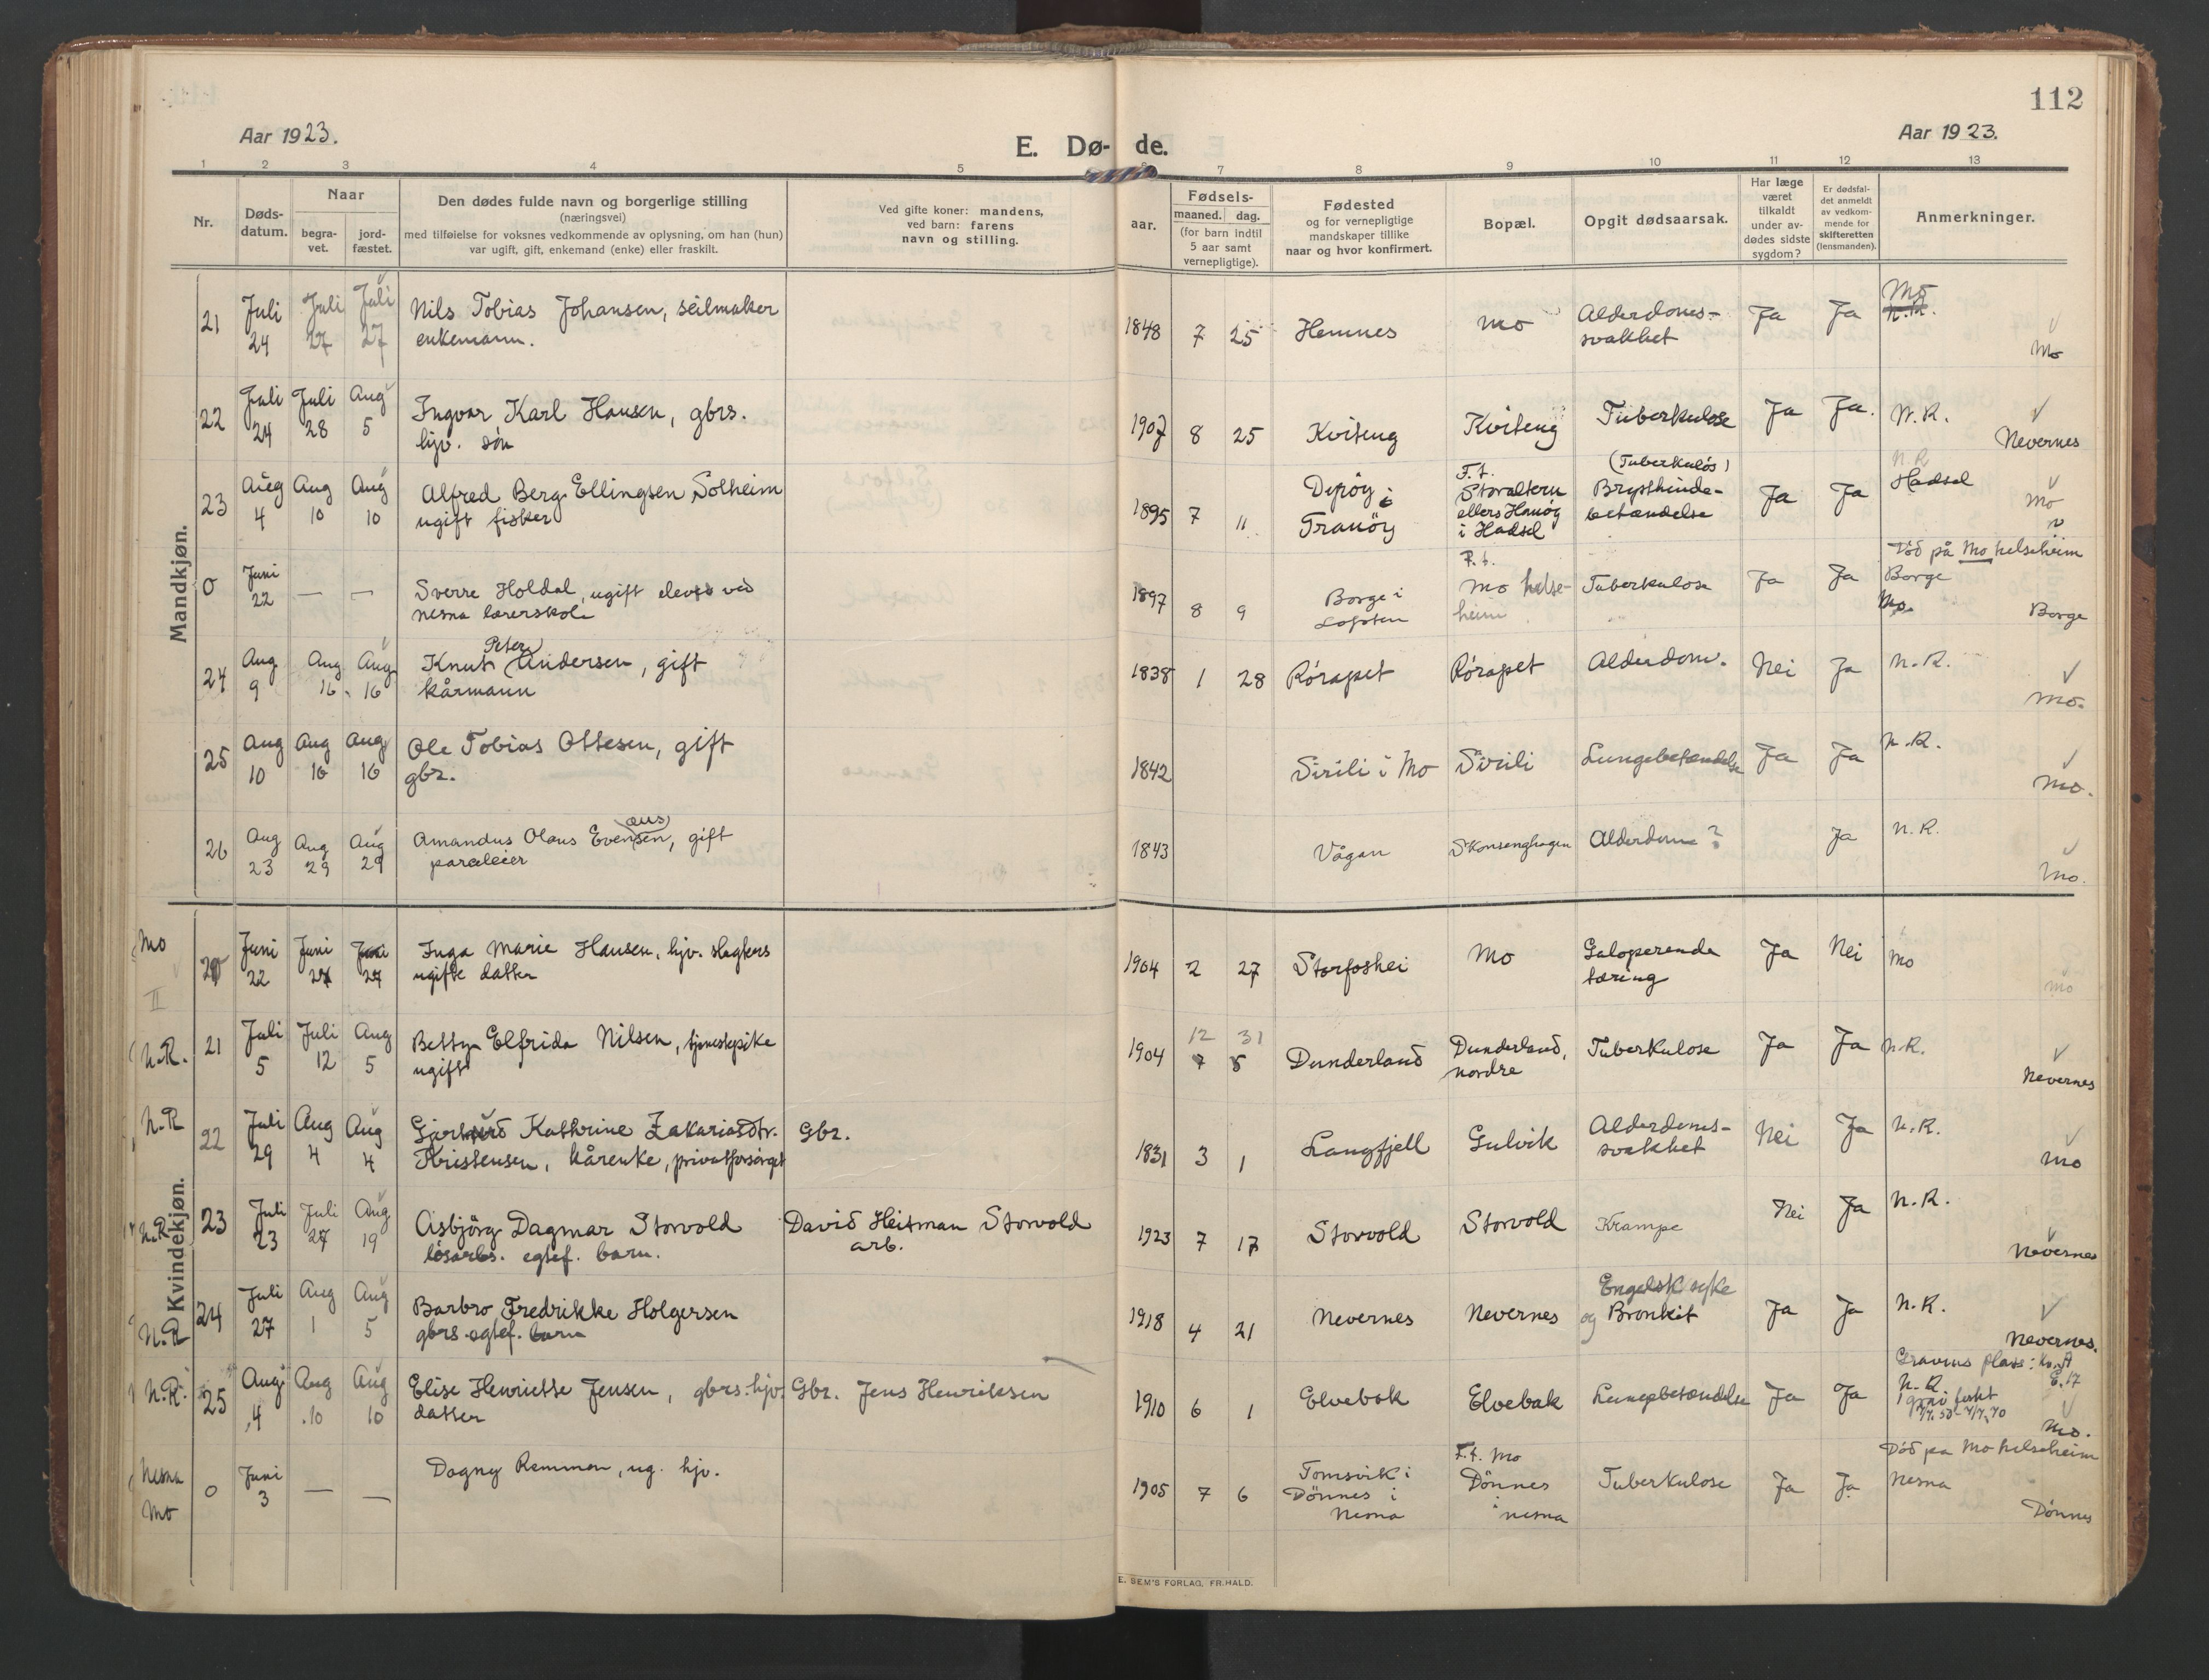 112
Aar 1923.
E. Dø- de.
Aar 1923.
1 2 3 4 5 6 7 8 9 10 11 12 13
Nr.
Døds-
datum.
Naar
begra-
vet.
jord-
fæstet.
Den dødes fulde navn og borgerlige stilling
(næringsvei)
med tilføielse for voksnes vedkommende av oplysning, om han (hun)
var ugift, gift, enkemand (enke) eller fraskilt.
Ved gifte koner: mandens,
ved barn: farens
navn og stilling.
aar.
Fødsels-
maaned. dag.
(for barn indtil
5 aar samt
vernepligtige).
Fødested
og for vernepligtige
mandskaper tillike
naar og hvor konfirmert.
Bopæl.
Opgit dødsaarsak.
Har læge
været
tilkaldt
under av-
dødes sidste
sygdom?
Er dødsfal-
det anmeldt
av vedkom-
mende for
skifteretten
(lensmanden).
Anmerkninger.
Mandkjøn.
21 Juli 24 Juli 27 Juli 27
Nils Tobias Johansen, seilmaker
enkemann.
1848 7 25 Hemnes Mo
Alderdoms-
svakhet
Ja Ja Mo
N.R.
Mo
22 Juli 24 Juli 28 Aug 5
Ingvar Karl Hansen, gbrs.
hjv. søn
1907 8 25 Kviteng Kviteng Tuberkulose Ja Ja. N.R.
Nevernes
23 Aug 4 Aug 10 Aug 10
Alfred Berg Ellingsen Solheim
ugift fisker
1895 7 11
i
Tranöy
F.t.
ellers Hanöy
i Hadsel
(Tuberkuløs)
Brysthinde-
betændelse
Ja Ja
N.R
Hadsel
Mo
0 Juni 22 — —
Sverre Holdal, ugift elev ved
Nesna lærerskole
1897 8 9
Borge i
Lofoten
F.t.
Mo helse-
heim
Tuberkulose Ja Ja
Död på Mo helseheim
Borge
Mo.
Borge
24 Aug 9 Aug 16 Aug 16
Peter
Knut Andersen, gift
kårmann
1838 1 28 Rörapet Rörapet Alderdom. Nei Ja N.R.
Mo.
25 Aug 10 Aug 16 Aug 16
Ole Tobias Ottesen, gift
gbr.
1842 Sirili i Mo Sirili Lungebetændelse Ja Ja N.R.
Mo.
26 Aug 23 Aug 29 Aug 29
Amandus Olaus Evensen, gift
parceleier
1843 Vågan Skonsenghagen Alderdom? Ja N.R.
Mo.
Kvindekjøn.
Mo
II
20 Juni 22 Juni 27 Juni 27
Inga Marie Hansen, hjv. slagters
ugifte datter
1904 2 27 Storfoshei Mo
Galoperende
tæring
Ja Nei Mo
Mo
N.R.
21 Juli 5 Juli 12 Aug 5
Betty Elfrida Nilsen, tjenestepike
ugift
12 31
1904 7 5 Dunderland
Dunderland,
nordre
Tuberkulose Ja Ja N.R.
Nevernes
N.R
22 Juli 29 Aug 4 Aug 4
Kathrine Zakariasdtr.
Kristensen, kårenke, privatforsörget
Gbr.
1831 3 1 Langfjell Gulvik
Alderdoms-
svakhet
Nei Ja N.R.
Mo
N.R
23 Juli 23 Juli 27 Aug 19
Asbjörg Dagmar Storvold
lösarbs. egtef. barn.
David Heitman Storvold
arb.
1923 7 17 Storvold Storvold Krampe Nei Ja N.R.
Nevernes
N.R
24 Juli 27 Aug 1 Aug 5
Barbro Fredrikke Holgersen
gbrs. egtef. barn
1918 4 21 Nevernes Nevernes
Engelsk syke
og Bronkit
Ja Ja N.R.
Nevernes.
N.R.
25 Aug 4 Aug 10 Aug 10
Elise Henriette Jensen, gbrs. hjv.
datter
Gbr. Jens Henriksen
1910 6 1 Elvebak Elvebak Lungebetændelse Ja Ja
Gravens plass: Kv. A
E. 17
N.R.
1 grav festet
Mo.
Nesna
Mo
0 Juni 3 — —
Dagny Remmen, ug. hjv.
1905 7 6
Tomsvik i
Dönnes i
Nesna
F.t. Mo
Dönnes
i Nesna
Tuberkulose Ja Ja
Död på Mo helseheim
Nesna
Dönnes
E. SEM'S FORLAG, FR.HALD.